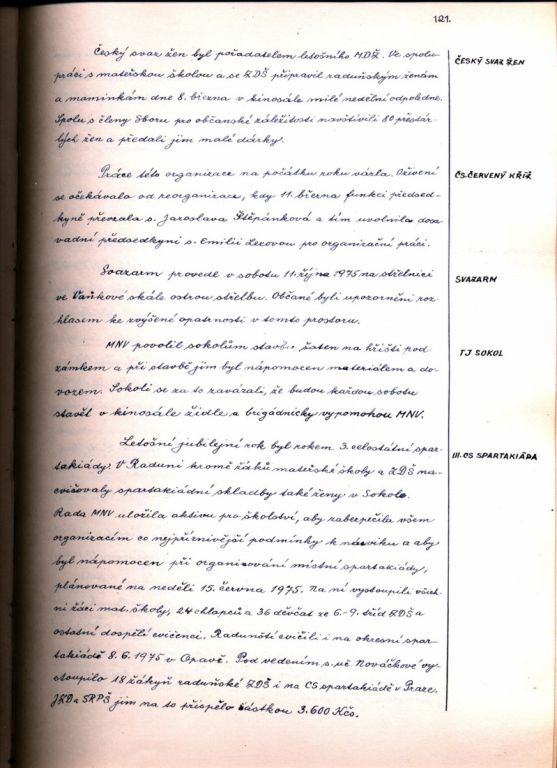 121.
Český svaz žen byl pořadatelem letošního MDŽ. Ve spolu-
ČESKÝ SVAZ ŽEN
práci s mateřskou školou a se ZDŠ připravil raduňským ženám
a maminkám dne 8. března v kinosále milé nedělní odpoledne.
Spolu s členy Sboru pro občanské záležitosti navštívili 80 přestár-
lých žen a předali jim malé dárky.
Práce této organizace na počátku roku vázla. Oživení
ČS. ČERVENÝ KŘÍŽ
se očekávalo od reorganizace, kdy 11. března funkci předsed-
kyně převzala s. Jaroslava Štěpánková a tím uvolnila dosa-
vadní předsedkyni s. Emilii Lexovou pro organizační práci.
Svazarm provedl v sobotu 11. října 1975 na střelnici
SVAZARM
ve Vaňkově skále ostrou střelbu. Občané byli upozorněni roz-
hlasem ke zvýšené opatrnosti v tomto prostoru.
MNV povolil sokolům stavbu šaten na hřišti pod
TJ SOKOL
zámkem a při stavbě jim byl nápomocen materiálem a do-
vozem. Sokoli se za to zavázali, že budou každou sobotu
stavět v kinosále židle a brigádnicky vypomohou MNV.
Letošní jubilejní rok byl rokem 3. celostátní spar-
III. CS SPARTAKIÁDA
takiády. V Raduni kromě žáků mateřské školy a ZDŠ na-
cvičovaly spartakiádní skladby také ženy v Sokole.
Rada MNV uložila aktivu pro školství, aby zabezpečila všem
organizacím co nejpříznivější podmínky k nácviku a aby
byl nápomocen při organizování místní spartakiády,
plánované na neděli 15. června 1975. Na ní vystoupili všich-
ni žáci mat. školy, 24 chlapců a 36 děvčat ze 6.-9. tříd ZDŠ a
ostatní dospělí cvičenci. Raduňští cvičili i na okresní spar-
takiádě 8. 6. 1975 v Opavě. Pod vedením s. uč. Nováčkové vy-
stoupilo 18 žákyň raduňské ZDŠ i na CS spartakiádě v Praze.
JZD a SRPŠ jim na to přispělo částkou 3.600 Kčs.